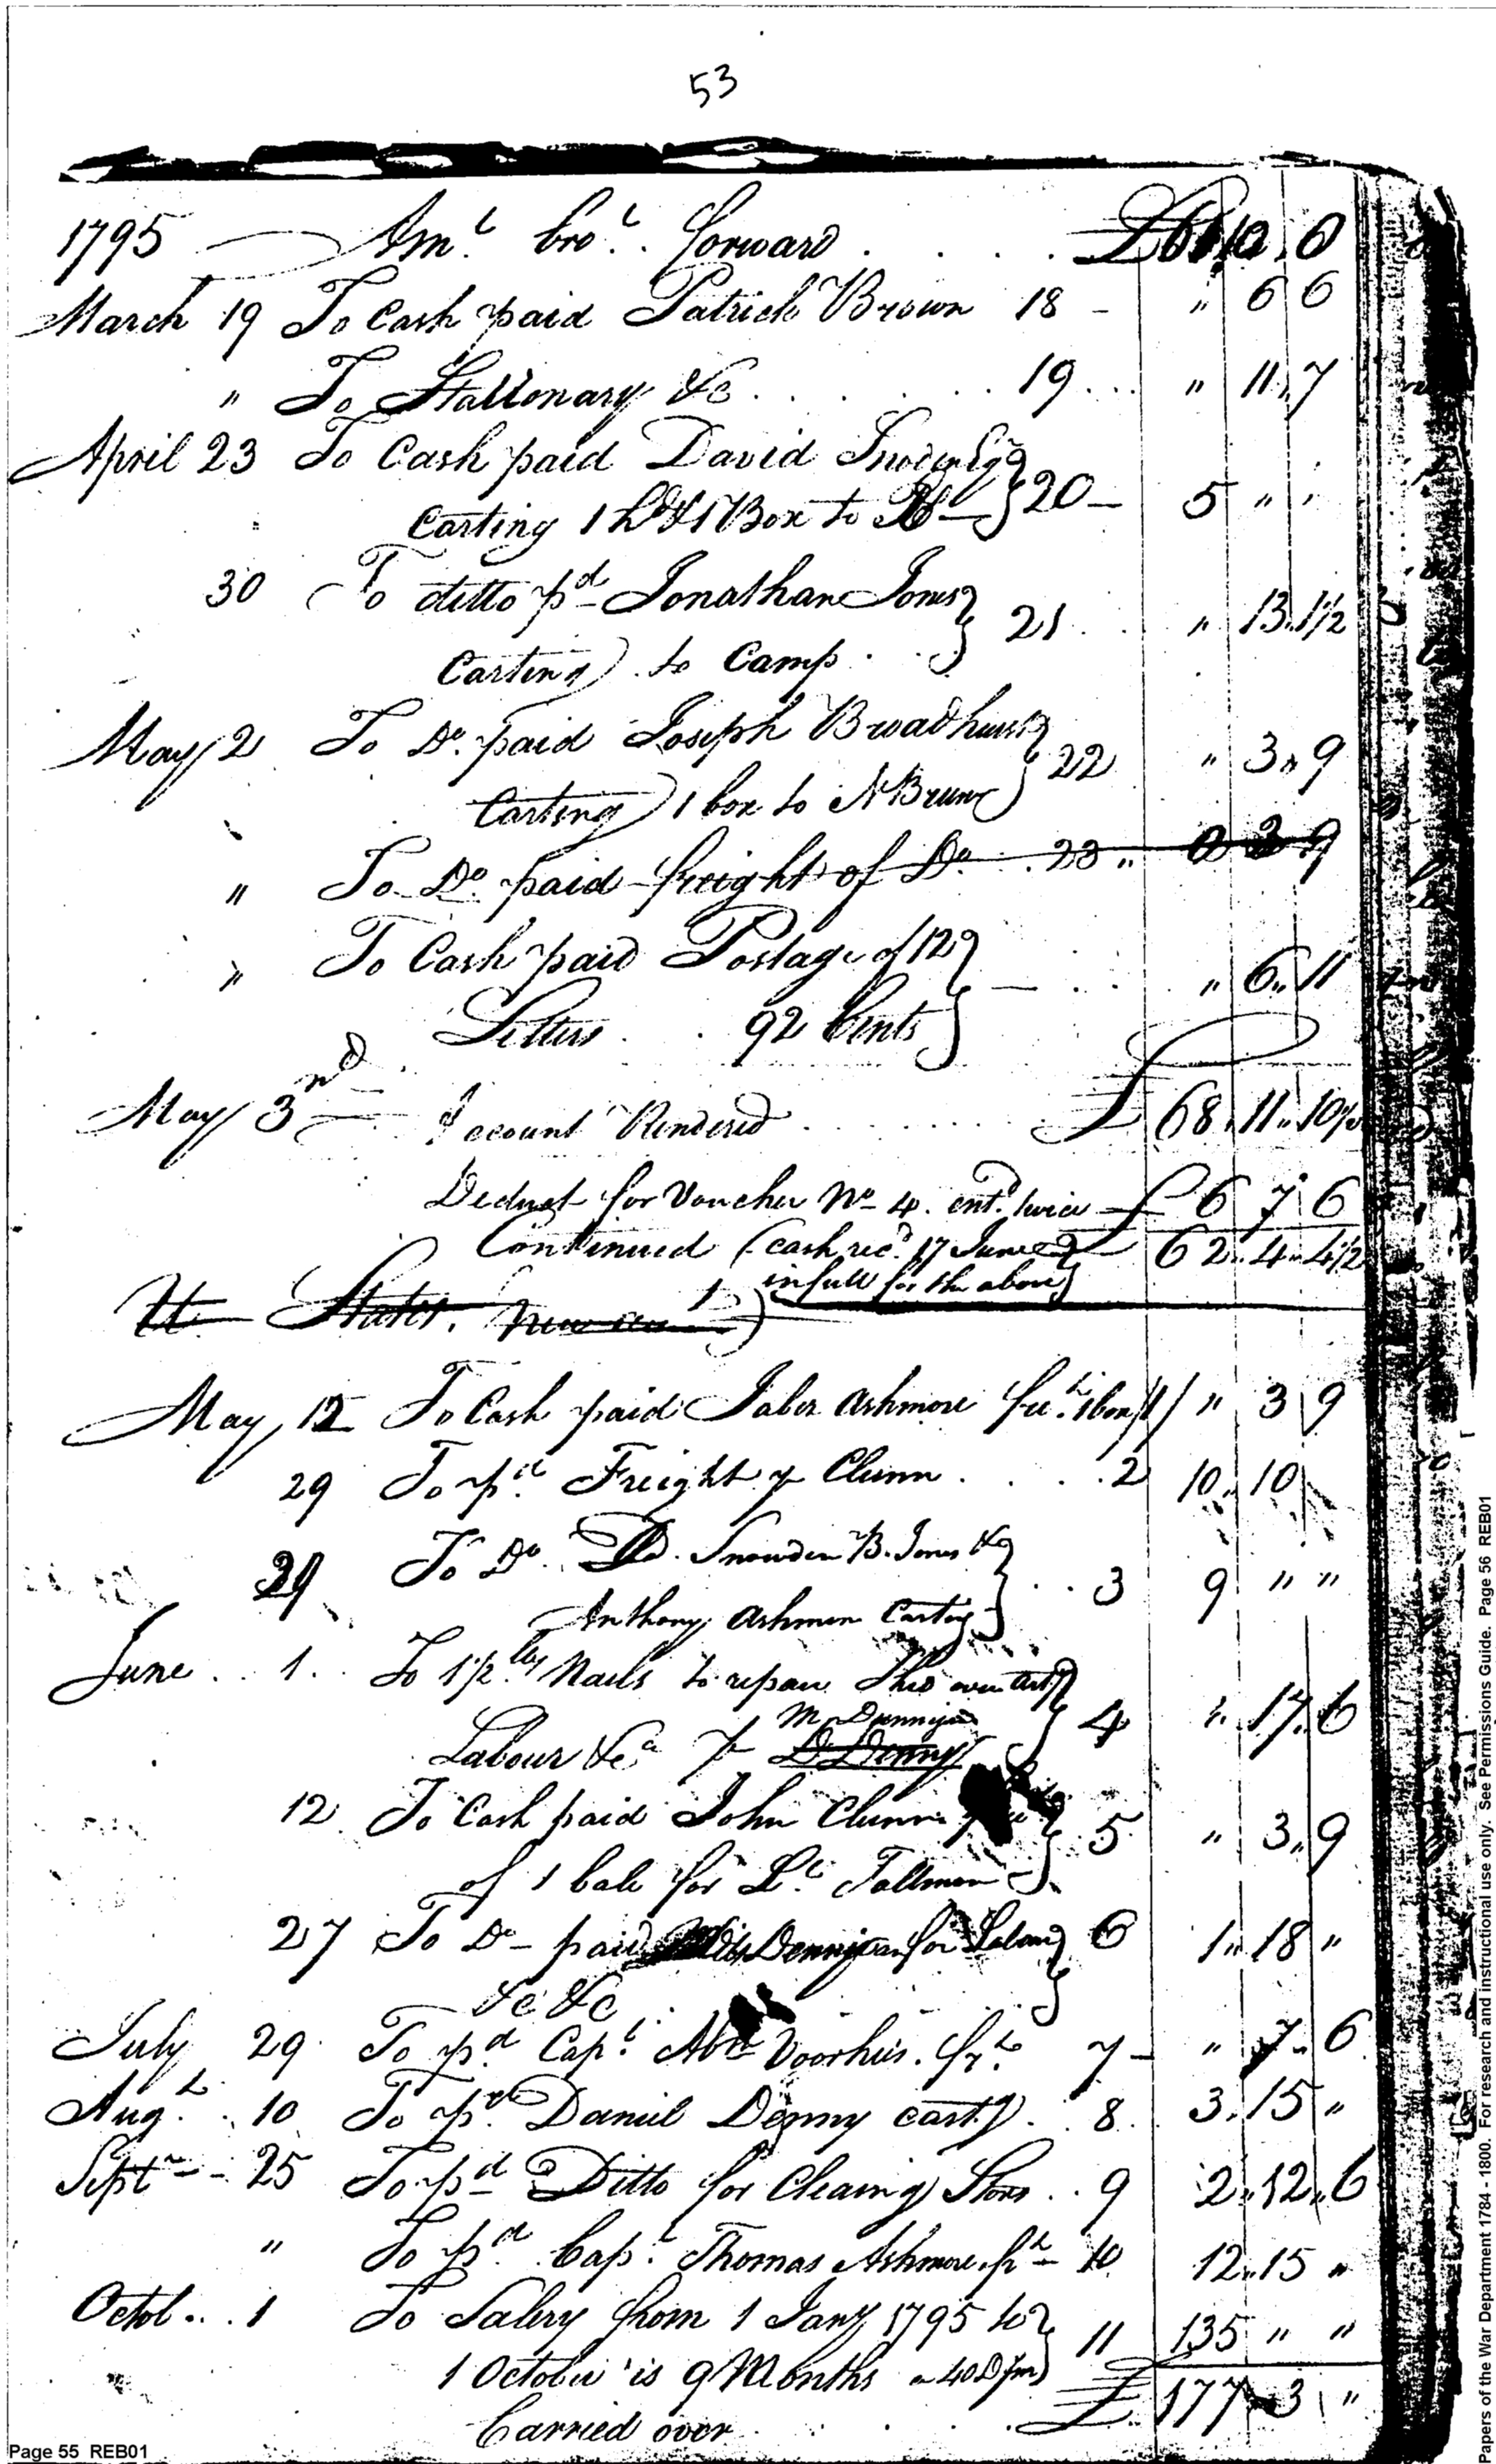 53
1795 Amt. brot. forward . . . . £ 10 0
March 19 To Cash paid Patrick Brown 18 - " 6 6
" To Stationary &c . . . . . . 19 ... " 11 7
April 23 To Cash paid David
Carting 1 hd & 1 Box to } 20 - 5 " "
30 To ditto pd Jonathan Jones
Carting to Camp . . } 21 . . " 13 1½
May 2 To Do. paid Joseph Broadhurst
Carting 1 box to N Brunc } 22 " 3 " 9
" To Do paid freight of Do . . 23 " 0 3 9
" To Cash paid Postage of 12
Letters . . 92 Cents } — . . . " 6 " 11
May 3rd Account Rendered . . . . . . . £ 68 11 " 10½
Deduct for Voucher No 4. entd. twice £ 6 7 6
Continued (cash recd. 17 June 62 " 4 " 4½
in full for the above)
U States. New
May 12 To Cash paid Jabez Ashmore fret. 1 box 1 " 3 9
29 To pd. Freight p Clunn . . . . 2 10 " 10
29 To Do. Dd. Snowden B. Jones &
Anthony Ashmore Carting } . . 3 9 " "
June . . 1 . . To 1/2 lb Nails to repair
Labour &ca p M Dannigan D Denny } 4 " 17 " 6
12 To Cash paid John Clunn
of 1 bale for Lt. Tallman } 5 " 3 " 9
27 To Do - paid Dennigan for Labour } 6 1 " 18 "
&c &c
July 29 To pd. Capt. Abm Voorhis. frt. 7 - " 7 " 6
Augt. . 10 To pd. Daniel Denny cartg . . 8 . 3 " 15 "
Septr - - 25 To pd Ditto for Cleaing Store . . 9 2 " 12 " 6
" To pd. Capt. Thomas Ashmore frt - 10 12 " 15 "
Octob . . . 1 To Salery from 1 Jany 1795 to
1 October is 9 Months a 40 D pm } 11 135 " "
Carried over . . . £ 177 3 "
Page 55 REB01
Papers of the War Department 1784 - 1800. For research and instructional use only. See Permissions Guide. Page 56 REB01